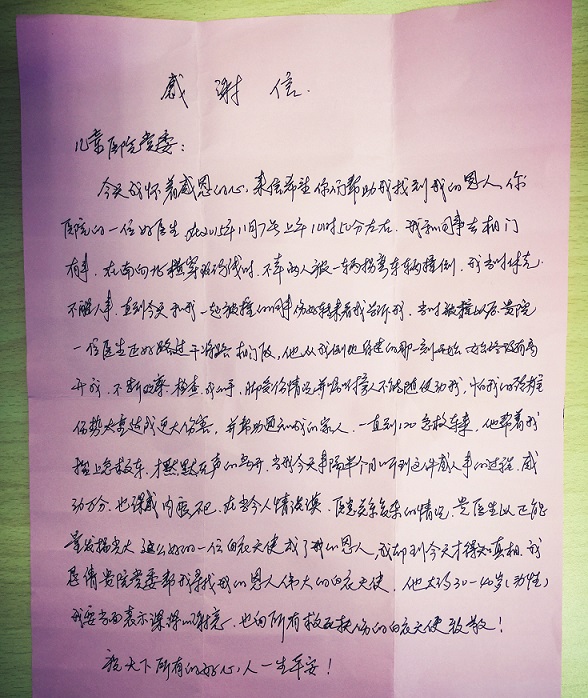 感谢信.
儿童医院党委:
今天我怀着感恩的心,来信希望你们帮助我找到我的恩人,你
医院的一位好医生,在2015年11月7号上午10时50分左右,我和同事去相门
有事,在南向北横穿马路时,不幸两人被一辆拐弯车辆撞倒,我当时休克
不醒人事,直到今天和我一起被撞的同事伤好转来看我告诉我,当时被撞以后,贵院
一位医生正好路过干将路相门段,他从我倒地昏迷的那一刻开始,始终没有离
开我,不断观察,检查我的手,脚受伤情况并嘱咐旁人不能随便动我,怕我的颈椎
伤势太重造成更大伤害,并帮助通知我的家人,一直到120急救车来,他帮着我
抬上急救车,才默默无声的离开,当我今天事隔半个月听到这件感人事的过程,感
动万分,也深感内疚不已,在当今人情淡漠,医患关系复杂的情况,贵医生以正能
量发扬光大,这么好的一位白衣天使成了我的恩人,我却到今天才得知真相,我
恳请贵院党委帮我寻找我的恩人伟大的白衣天使,他大约30-40岁(男性)
我要当面表示深深的谢意,也向所有救死扶伤的白衣天使致敬!
祝天下所有的好心人一生平安!